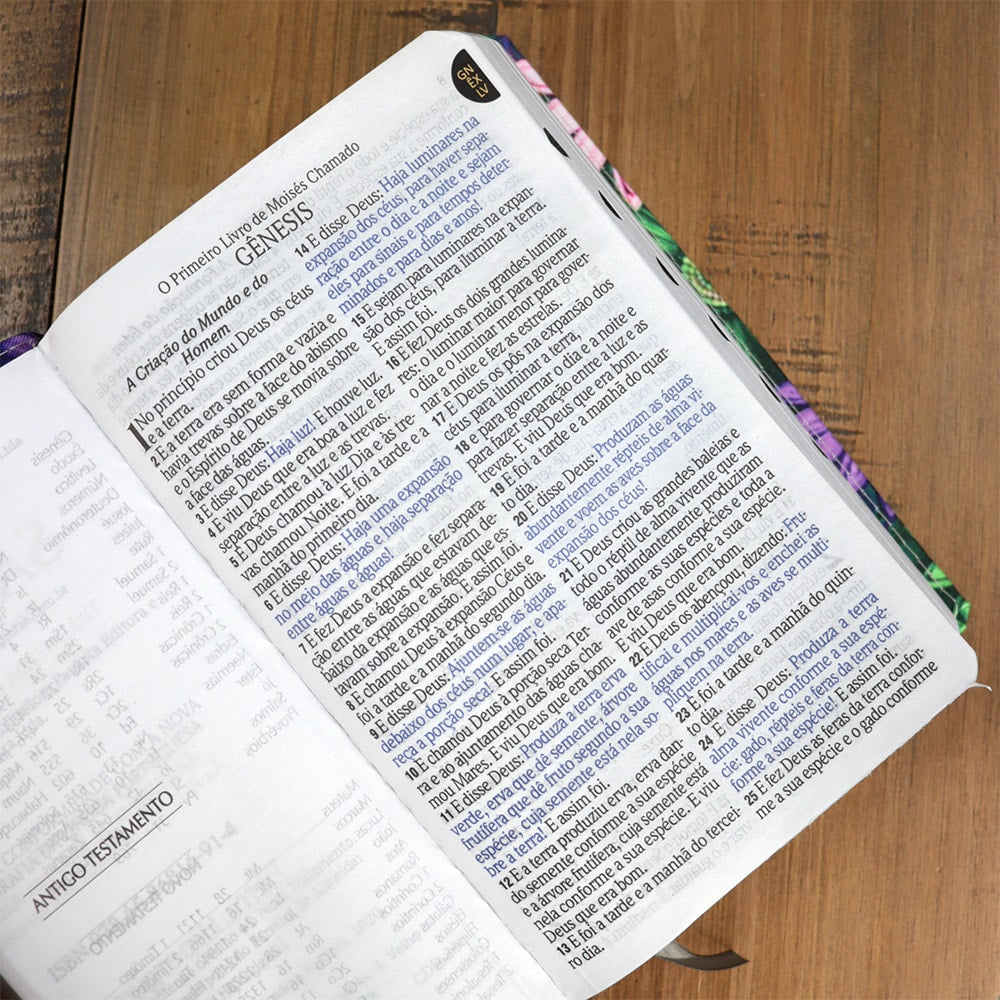 GN
EX
LV
8
O Primeiro Livro de Moisés Chamado
GÊNESIS
A Criação do Mundo e do
Homem
1 No princípio criou Deus os céus
e a terra.
2 E a terra era sem forma e vazia e
havia trevas sobre a face do abismo
e o Espírito de Deus se movia sobre
a face das águas.
3 E disse Deus: Haja luz! E houve luz.
4 E viu Deus que era boa a luz e fez
separação entre a luz e as trevas.
5 E Deus chamou à luz Dia e às tre-
vas chamou Noite. E foi a tarde e a
manhã do primeiro dia.
6 E disse Deus: Haja uma expansão
no meio das águas e haja separação
entre águas e águas!
7 E fez Deus a expansão e fez separa-
ção entre as águas que estavam de-
baixo da expansão e as águas que es-
tavam sobre a expansão. E assim foi.
8 E chamou Deus à expansão Céus e
foi a tarde e a manhã do segundo dia.
9 E disse Deus: Ajuntem-se as águas
debaixo dos céus num lugar; e apa-
reça a porção seca! E assim foi.
10 E chamou Deus à porção seca Ter-
ra e ao ajuntamento das águas cha-
mou Mares. E viu Deus que era bom.
11 E disse Deus: Produza a terra erva
verde, erva que dê semente, árvore
frutífera que dê fruto segundo a sua
espécie, cuja semente está nela so-
bre a terra! E assim foi.
12 E a terra produziu erva, erva dan-
do semente conforme a sua espécie
e a árvore frutífera, cuja semente está
nela conforme a sua espécie. E viu
Deus que era bom.
13 E foi a tarde e a manhã do tercei-
ro dia.
14 E disse Deus: Haja luminares na
expansão dos céus, para haver sepa-
ração entre o dia e a noite e sejam
eles para sinais e para tempos deter-
minados e para dias e anos!
15 E sejam para luminares na expan-
são dos céus, para iluminar a terra.
E assim foi.
16 E fez Deus os dois grandes lumina-
res: o luminar maior para governar
o dia e o luminar menor para gover-
nar a noite e fez as estrelas.
17 E Deus os pôs na expansão dos
céus para iluminar a terra,
18 e para governar o dia e a noite e
para fazer separação entre a luz e as
trevas. E viu Deus que era bom.
19 E foi a tarde e a manhã do quar-
to dia.
20 E disse Deus: Produzam as águas
abundantemente répteis de alma vi-
vente e voem as aves sobre a face da
expansão dos céus!
21 E Deus criou as grandes baleias e
todo o réptil de alma vivente que as
águas abundantemente produziram
conforme as suas espécies e toda a
ave de asas conforme a sua espécie.
E viu Deus que era bom.
22 E Deus os abençoou, dizendo: Fru-
tificai e multiplicai-vos e enchei as
águas nos mares e as aves se multi-
pliquem na terra.
23 E foi a tarde e a manhã do quin-
to dia.
24 E disse Deus: Produza a terra
alma vivente conforme a sua espé-
cie: gado, répteis e feras da terra con-
forme a sua espécie! E assim foi.
25 E fez Deus as feras da terra confor-
me a sua espécie e o gado conforme
ANTIGO TESTAMENTO